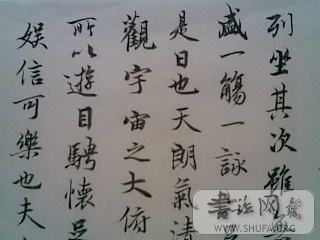 列坐其次雖
盛一觴一詠
是日也天朗氣清
觀宇宙之大俯
所以遊目騁懷足
娛信可樂也夫
書法网
WWW.SHUFA.ORG